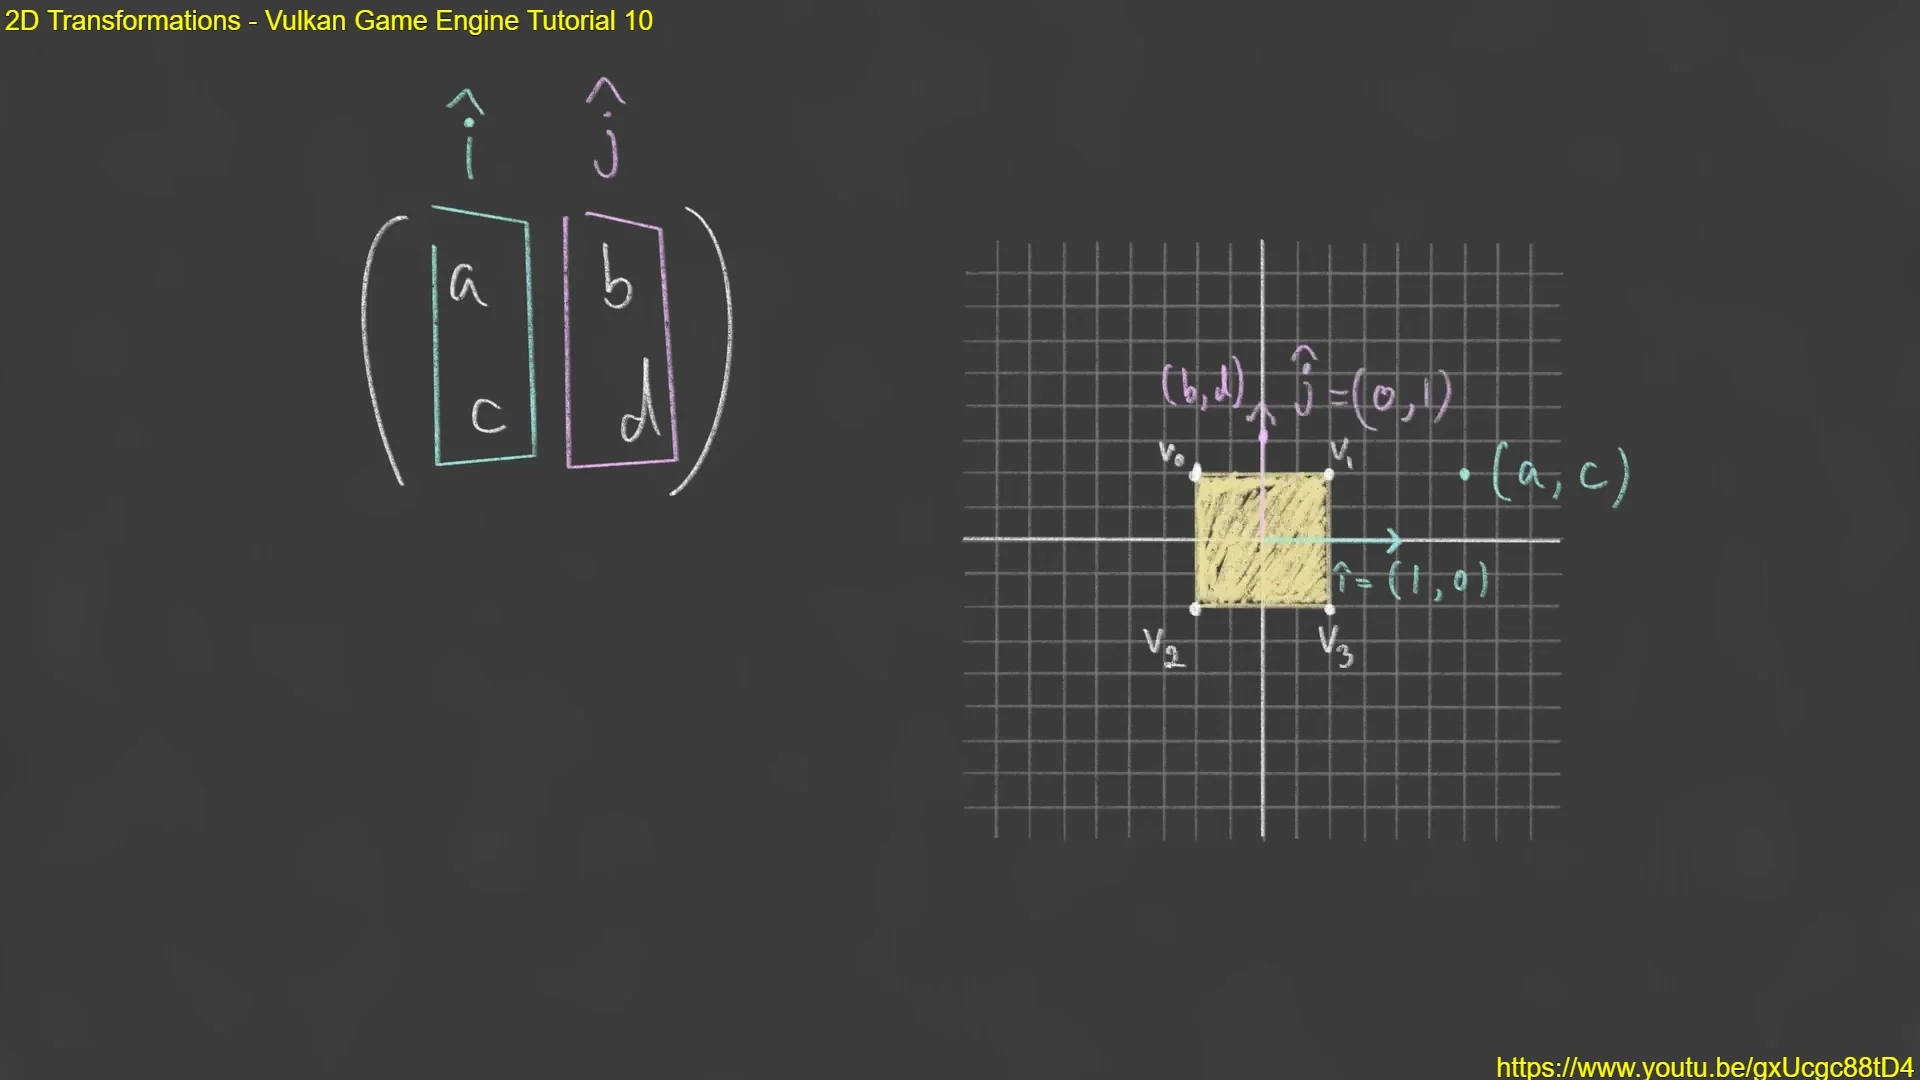 2D Transformations - Vulkan Game Engine Tutorial 10
î ĵ
a b
c d
(b,d) ĵ = (0,1)
v₀ v₁
(a, c)
î = (1, 0)
v₂ v₃
https://www.youtu.be/gxUcgc88tD4